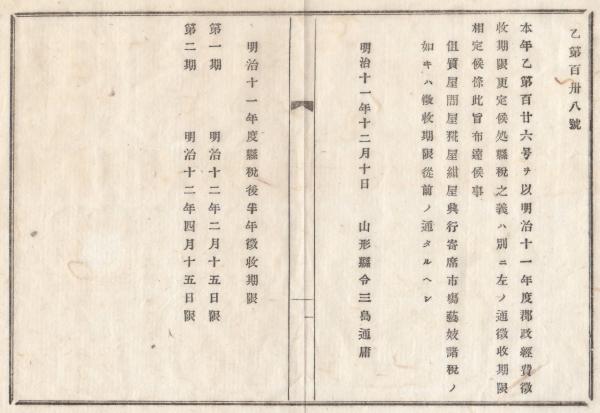 乙第百卅八號
本年乙第百廿六号ヲ以明治十一年度郡政經費徴
收期限更定候処縣税之義ハ別ニ左ノ通徴收期限
相定候條此旨布達候事
但質屋問屋糀屋紺屋興行寄席市塲藝妓諸税ノ
如キハ徴收期限從前ノ通タルヘシ
明治十一年十二月十日　山形縣令三島通庸
明治十一年度縣税後半年徴收期限
第一期　明治十二年二月十五日限
第二期　明治十二年四月十五日限